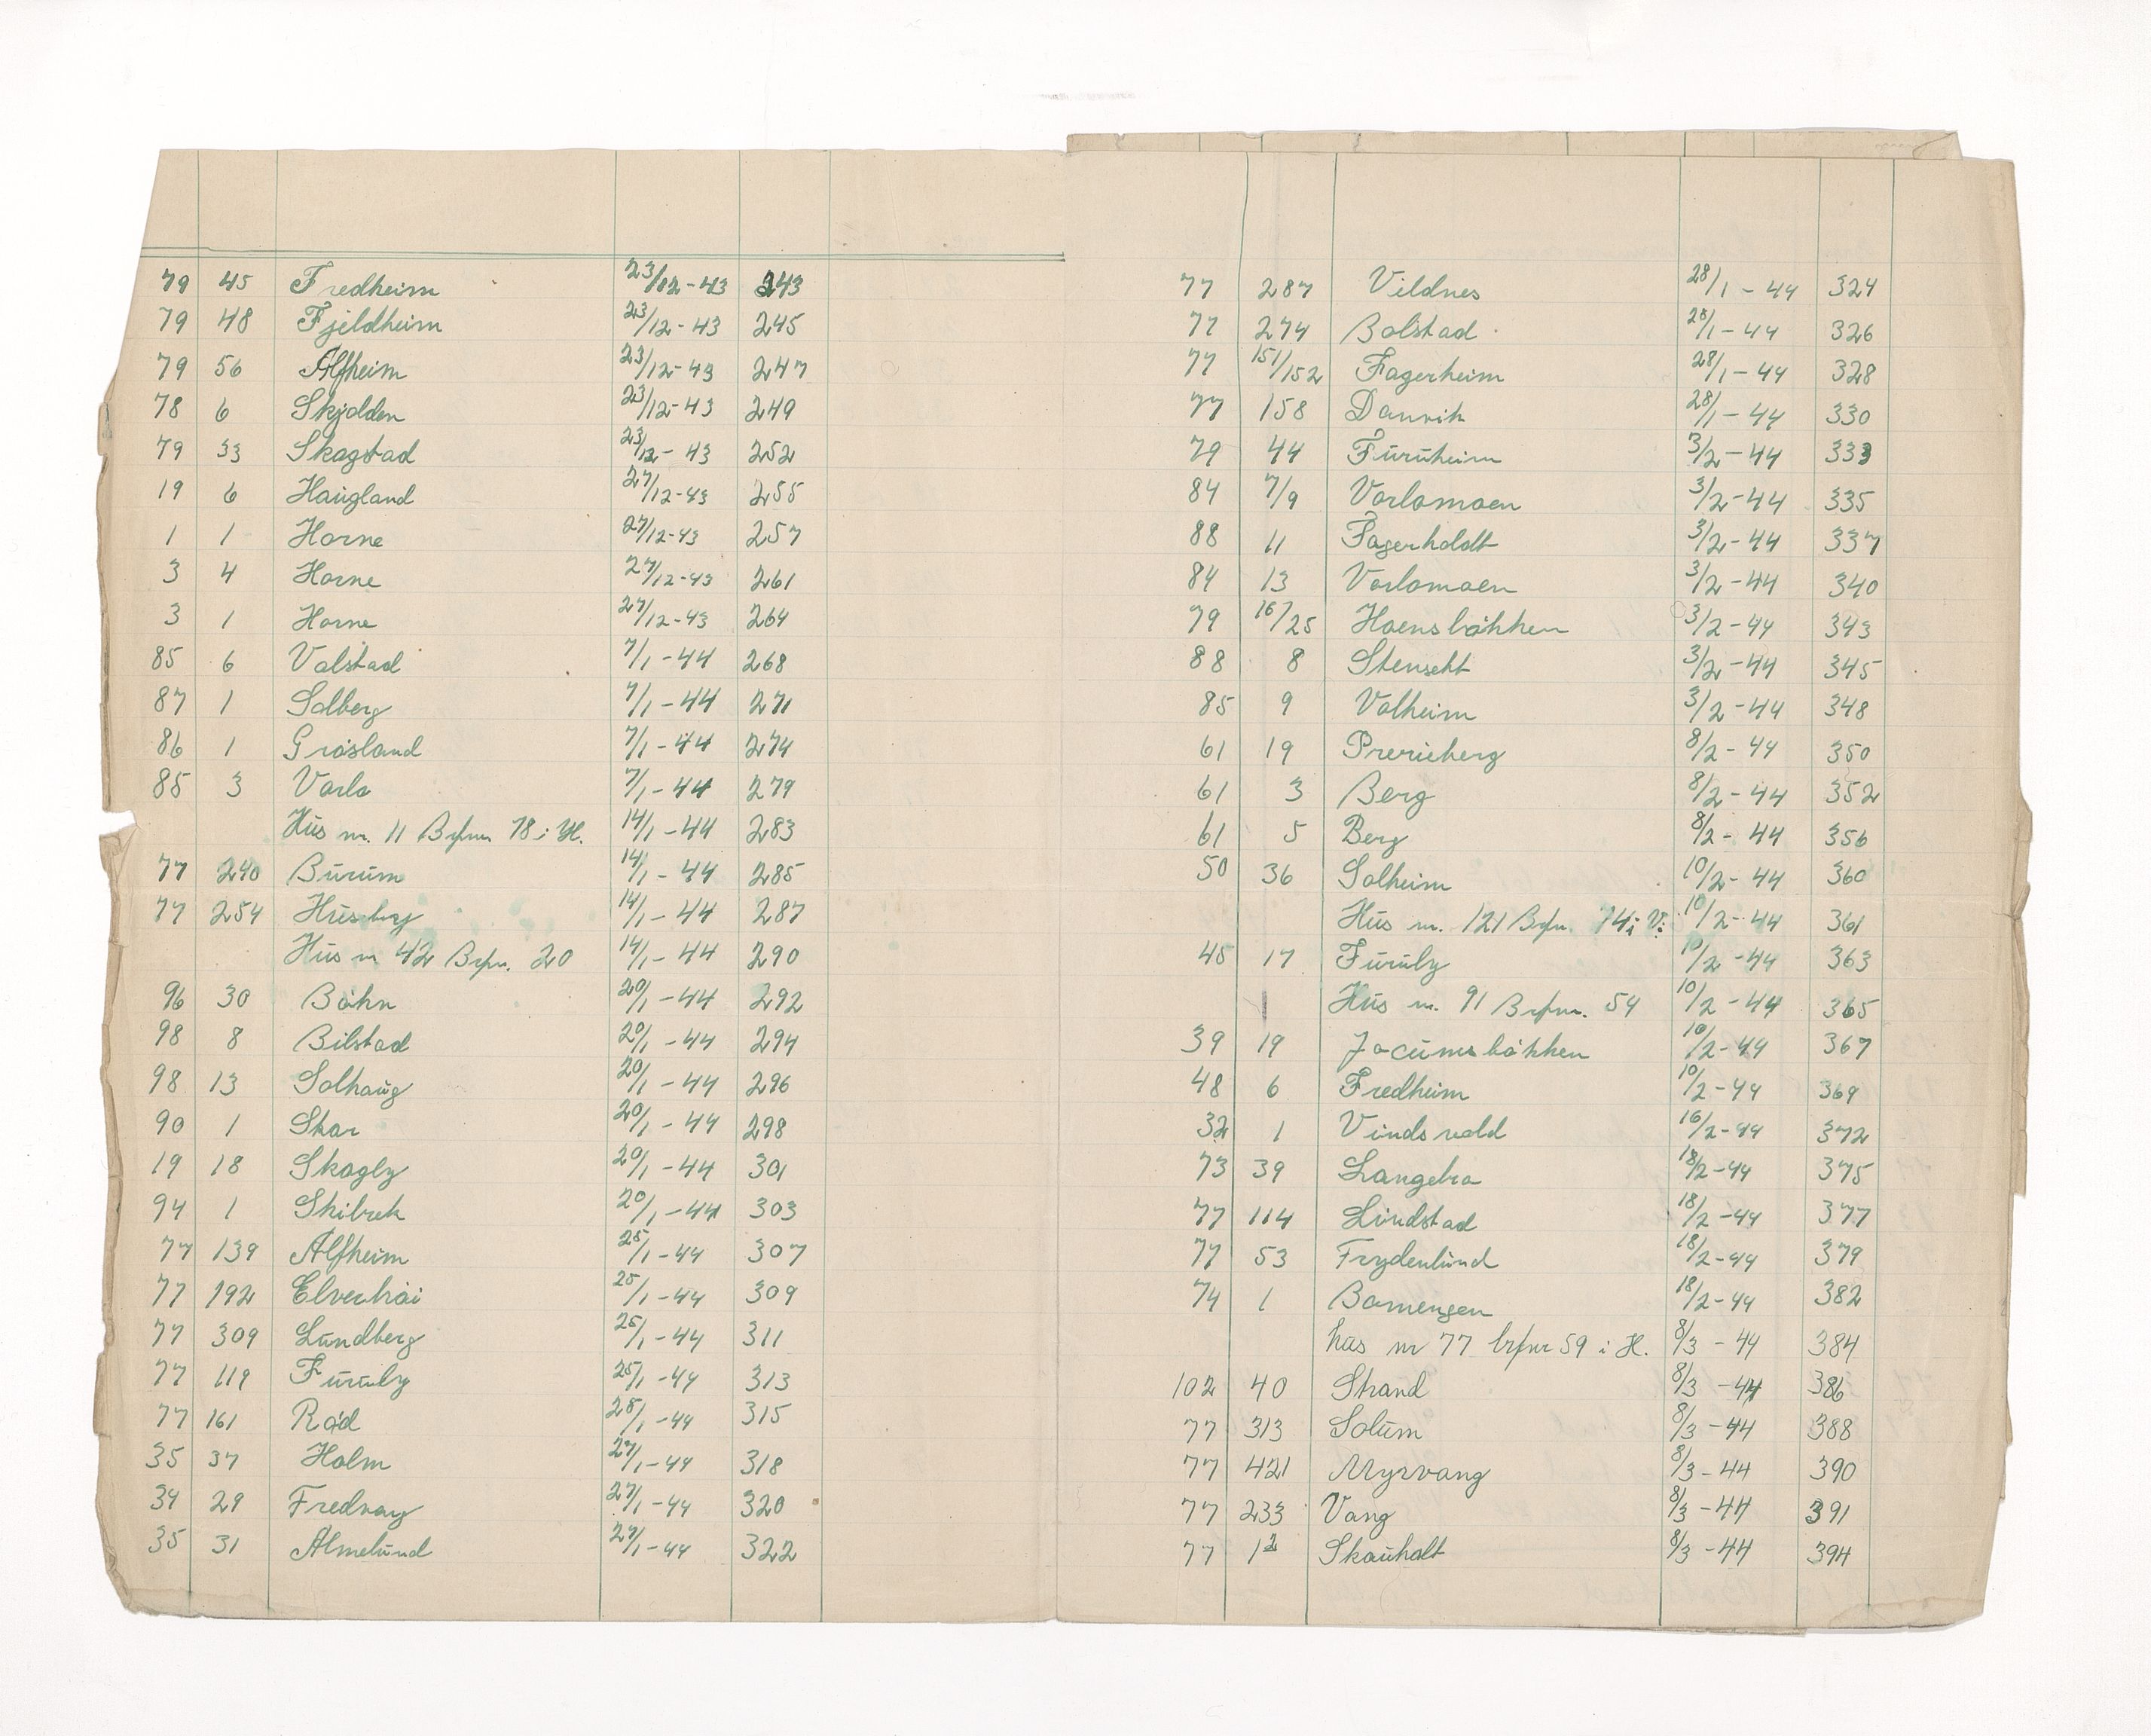 79 45 Fredheim 23/12-43 243
79 48 Fjeldheim 23/12-43 245
79 56 Alfheim 23/12-43 247
78 6 Skjolden 23/12-43 249
79 33 Skogstad 23/12-43 252
19 6 Haugland 27/12-43 255
1 1 Horne 27/12-43 257
3 4 Horne 27/12-43 261
3 1 Horne 27/12-43 264
85 6 Valstad 7/1-44 268
87 1 Solberg 7/1-44 271
86 1 Gråsland 7/1-44 274
85 3 Varlo 7/1-44 279
Hus nr. 11 Brfnr 78 i H. 14/1-44 283
77 240 Burum 14/1-44 285
77 254 Husby 14/1-44 287
Hus nr 42 Brfnr. 20 14/1-44 290
96 30 Båhn 20/1-44 292
98 8 Bilstad 20/1-44 294
98 13 Solhaug 20/1-44 296
90 1 Skar 20/1-44 298
19 18 Skogly 20/1-44 301
94 1 Skibrek 20/1-44 303
77 139 Alfheim 25/1-44 307
77 192 Elverhåi 25/1-44 309
77 309 Lundberg 25/1-44 311
77 119 Furuly 25/1-44 313
77 161 Råd 28/1-44 315
35 37 Holm 27/1-44 318
34 29 Fredvang 27/1-44 320
35 31 Almelund 27/1-44 322
77 287 Vildnes 28/1-44 324
77 274 Bolstad 28/1-44 326
77 151/152 Fagerheim 28/1-44 328
77 158 Danvik 28/1-44 330
79 44 Furuheim 3/2-44 333
84 7/9 Varlomoen 3/2-44 335
88 11 Fagerholdt 3/2-44 337
84 13 Varlomoen 3/2-44 340
79 16/25 Hoensbåkken 3/2-44 343
88 8 Stensett 3/2-44 345
85 9 Valheim 3/2-44 348
61 19 Prerieberg 8/2-44 350
61 3 Berg 8/2-44 352
61 5 Berg 8/2-44 356
50 36 Solheim 10/2-44 360
Hus nr. 121 Brfnr. 74 i V. 10/2-44 361
45 17 Furuly 10/2-44 363
Hus nr. 91 Brfnr. 54 10/2-44 365
39 19 Jocumsbåkken 10/2-44 367
48 6 Fredheim 10/2-44 369
32 1 Vindsvold 16/2-44 372
73 39 Langebro 18/2-44 375
77 114 Lindstad 18/2-44 377
77 53 Frydenlund 18/2-44 379
74 1 Bamengen 18/2-44 382
hus nr 77 brfnr 59 i H. 8/3-44 384
102 40 Strand 8/3-44 386
77 313 Solum 8/3-44 388
77 421 Myrvang 8/3-44 390
77 233 Vang 8/3-44 391
77 12 Skauholt 8/3-44 394